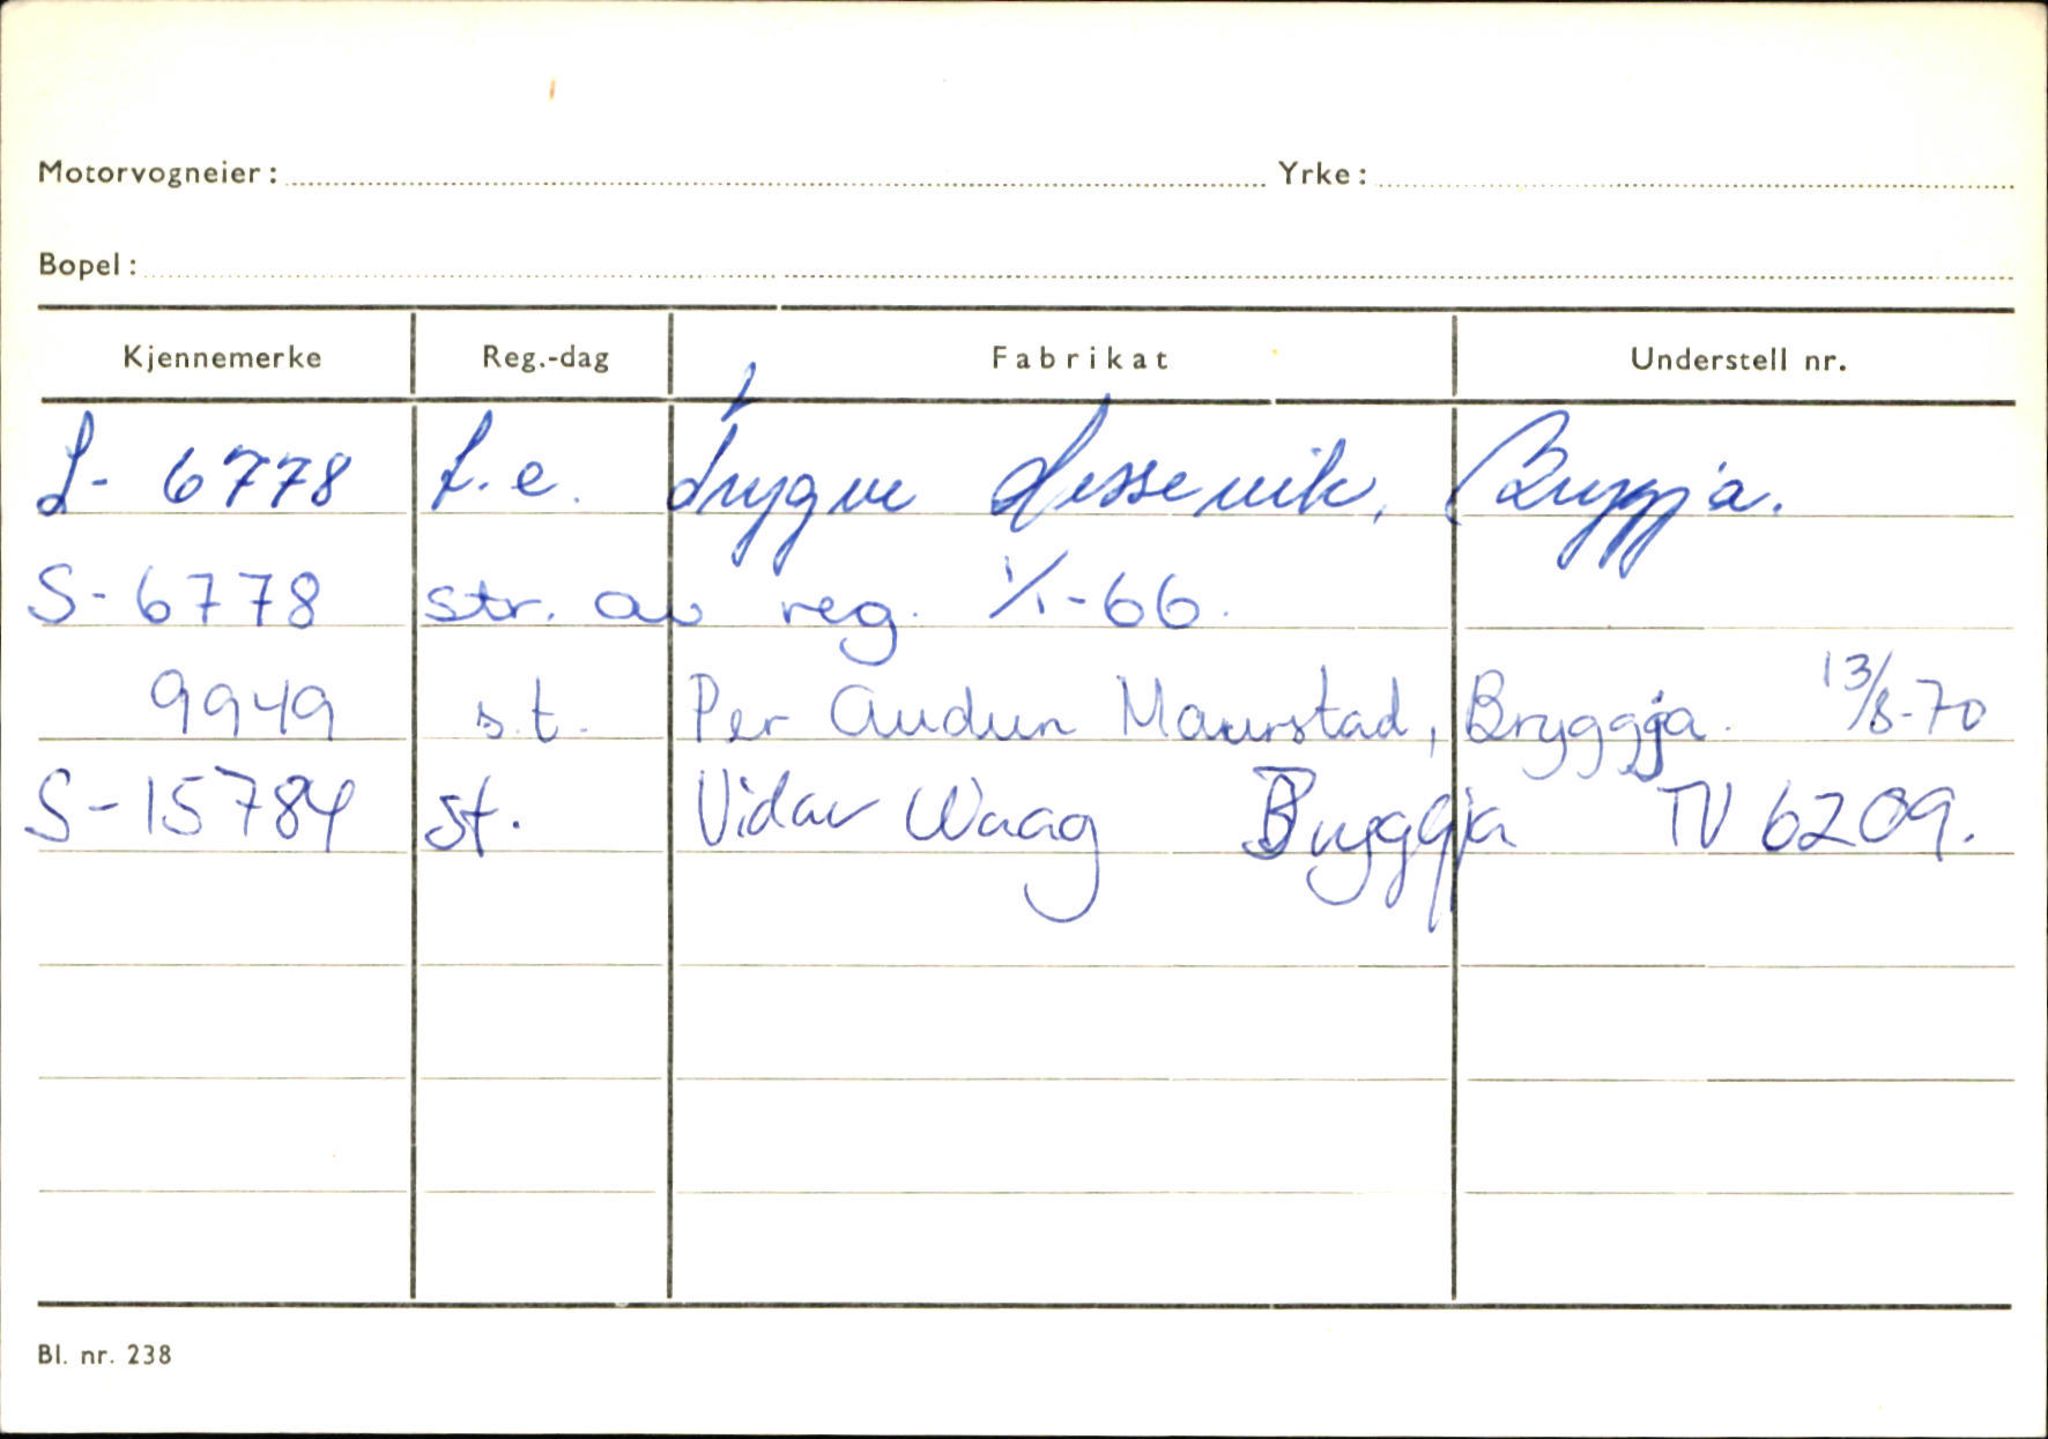 Motorvogneier: Yrke:
Bopel:
Kjennemerke Reg.-dag Fabrikat Understell nr.
S- 6778 t.e. Trygve Hessevik, Bryggja.
S-6778 str. av reg. 1/1-66.
9949 s.t. Per Audun Maurstad, Bryggja. 13/8-70
S-15784 st. Vidar Waag Bryggja TV 6209.
Bl. nr. 238